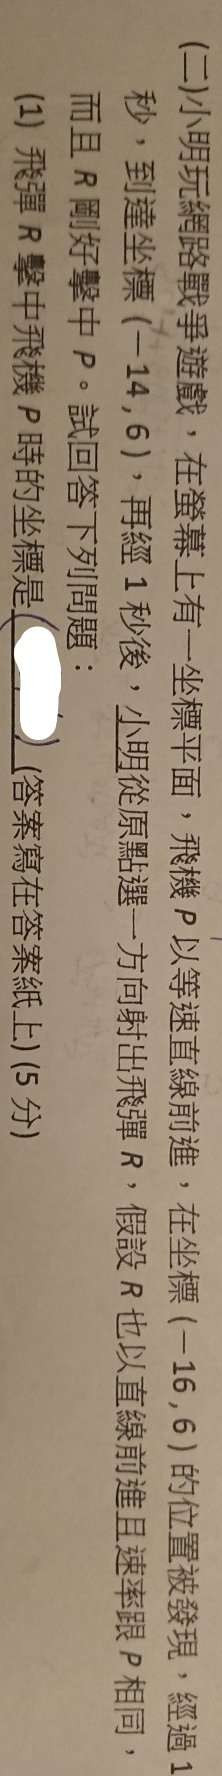 (二)小明玩網路戰爭遊戲，在螢幕上有一坐標平面，飛機 P 以等速直線前進，在坐標 (－16 , 6 ) 的位置被發現，經過 1
秒，到達坐標 (－14 , 6 )，再經 1 秒後，小明從原點選一方向射出飛彈 R，假設 R 也以直線前進且速率跟 P 相同，
而且 R 剛好擊中 P。試回答下列問題：
(1) 飛彈 R 擊中飛機 P 時的坐標是( ) (答案寫在答案紙上) (5 分)